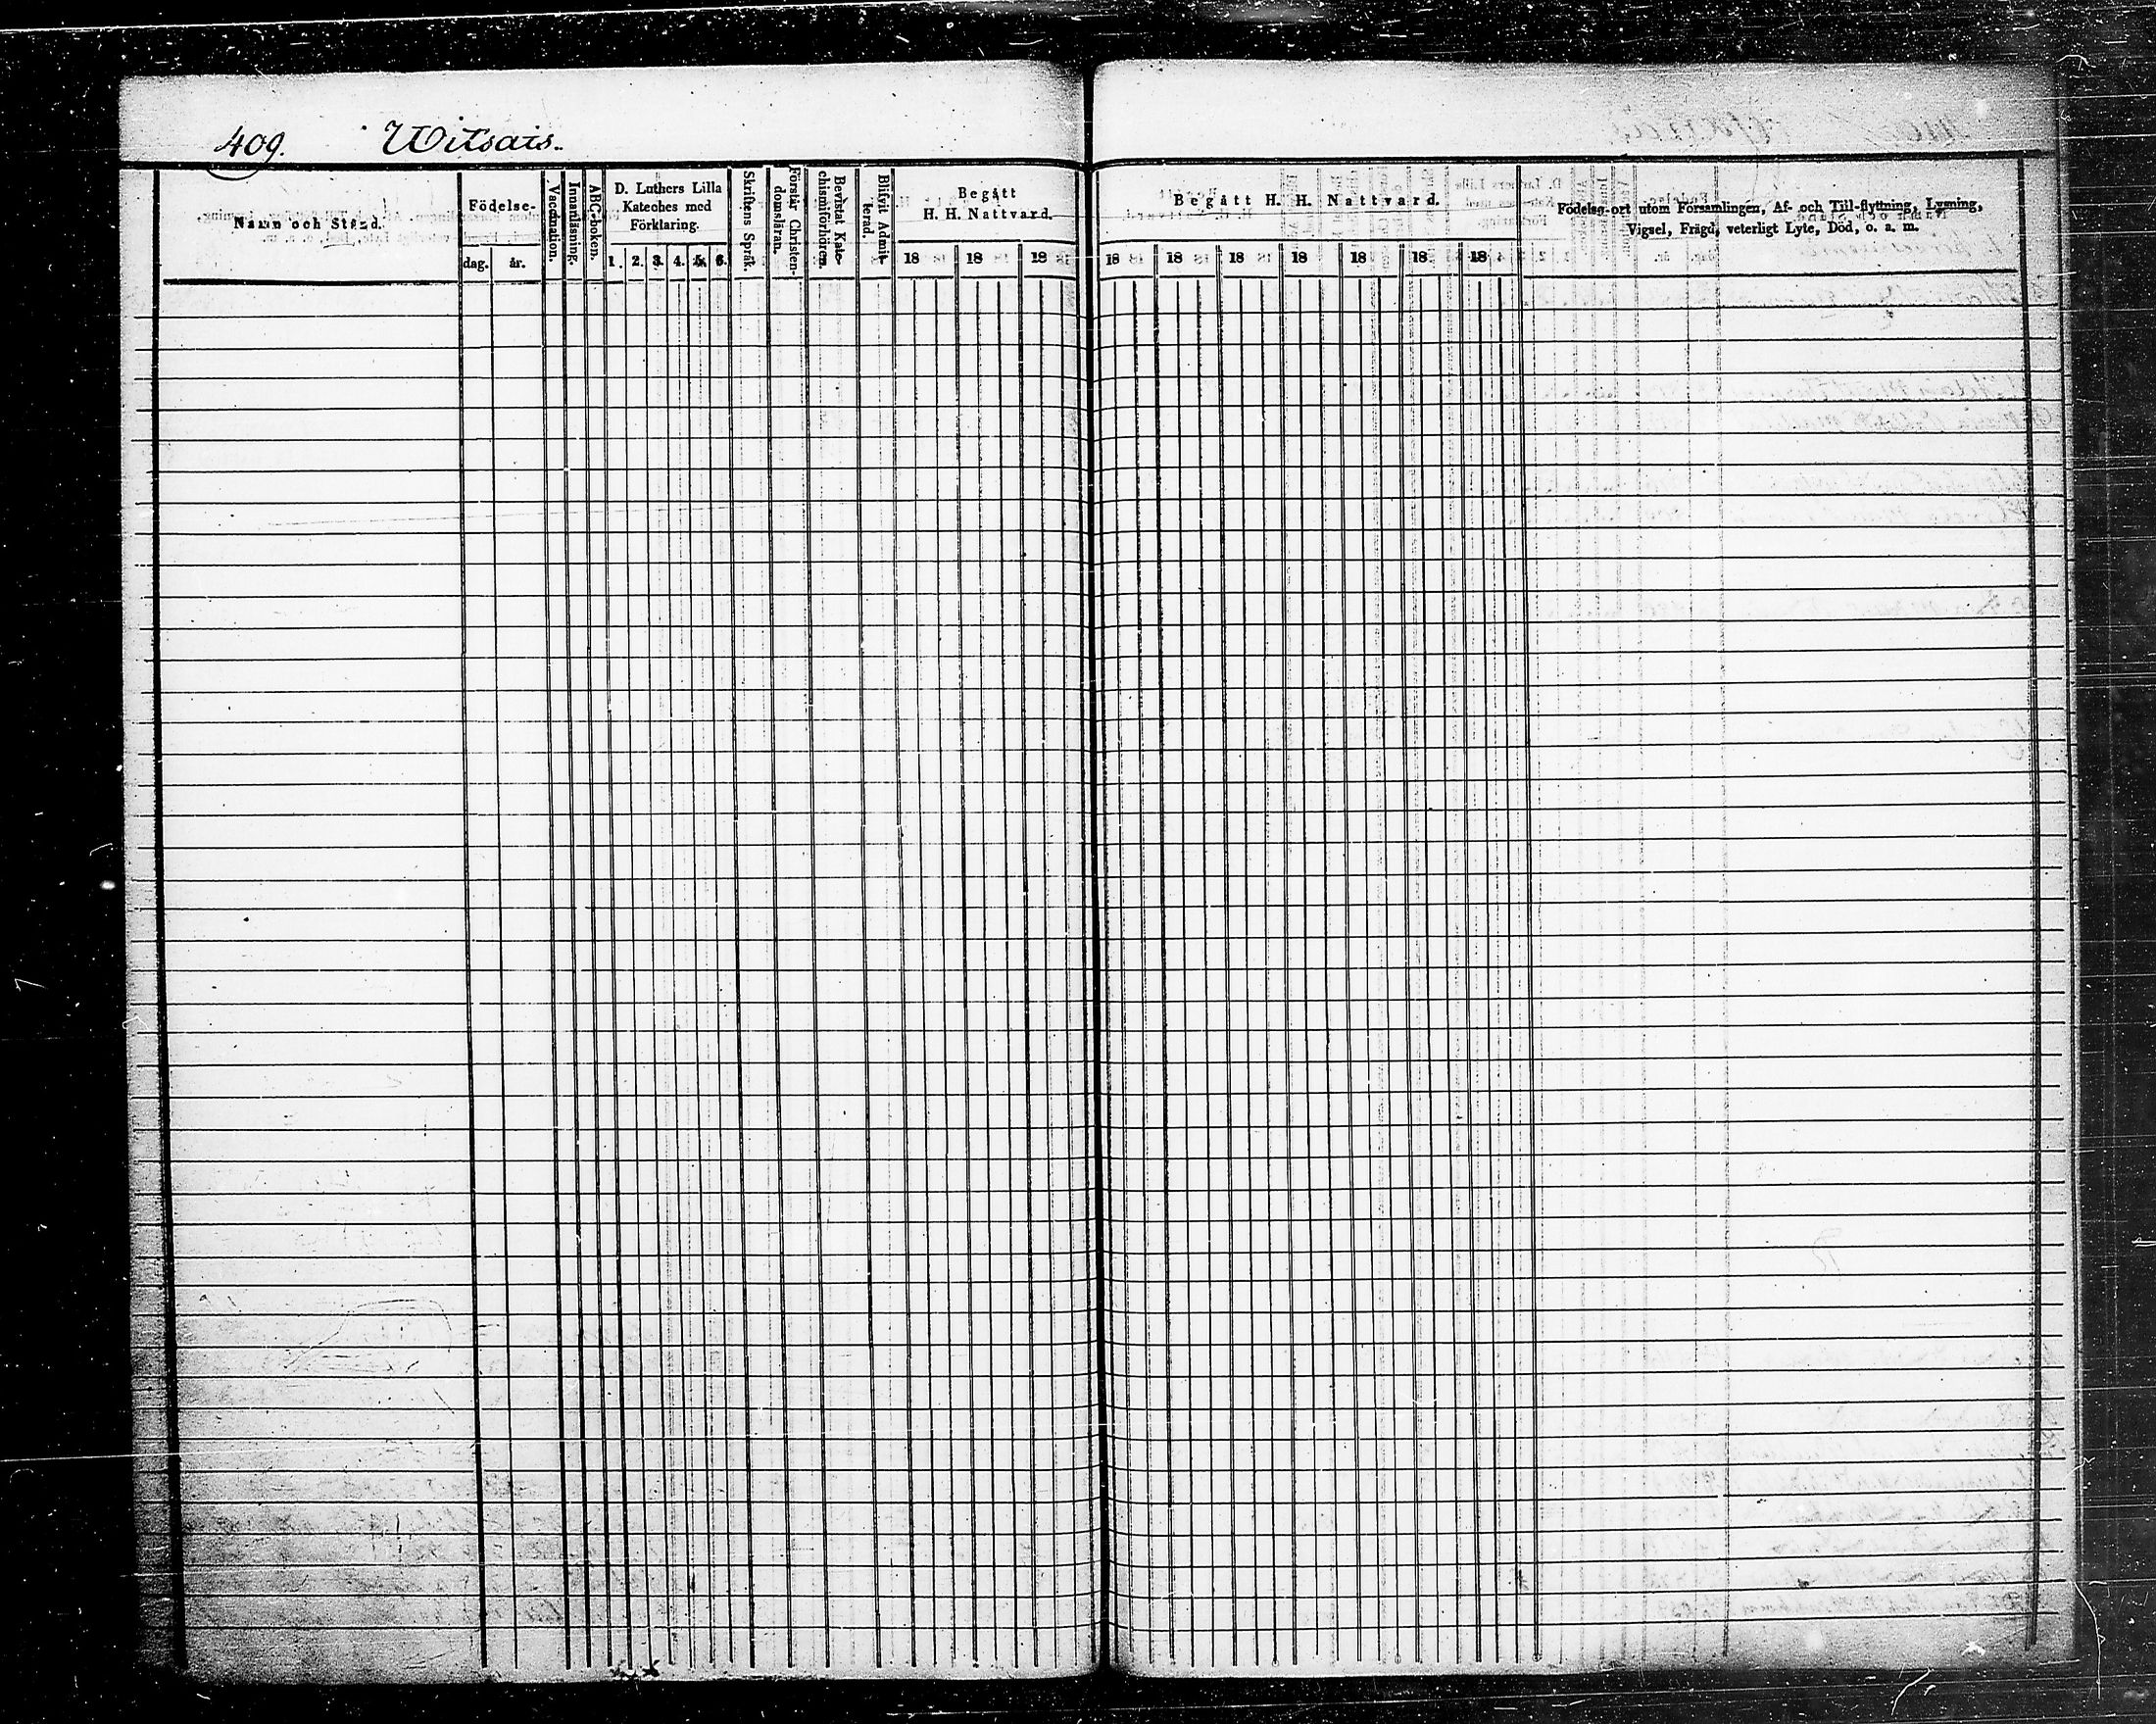 409. Witsais.
Namn och Stånd.
Födelse-
dag. år.
Vaccination.
Innanläsning.
ABC-boken.
D. Luthers Lilla
Kateches med
Förklaring.
1. 2. 3. 4. 5. 6.
Skriftens Språk.
Förstår Christen-
domsläran.
Bevistat Kate-
chismiförhören.
Blifvit Admit-
terad.
Begått
H. H. Nattvard.
18 18 18
Begått H. H. Nattvard.
18 18 18 18 18 18 18
Födelse-ort utom Församlingen, Af- och Till-flyttning, Lysning,
Vigsel, Frägd, veterligt Lyte, Död, o. a. m.